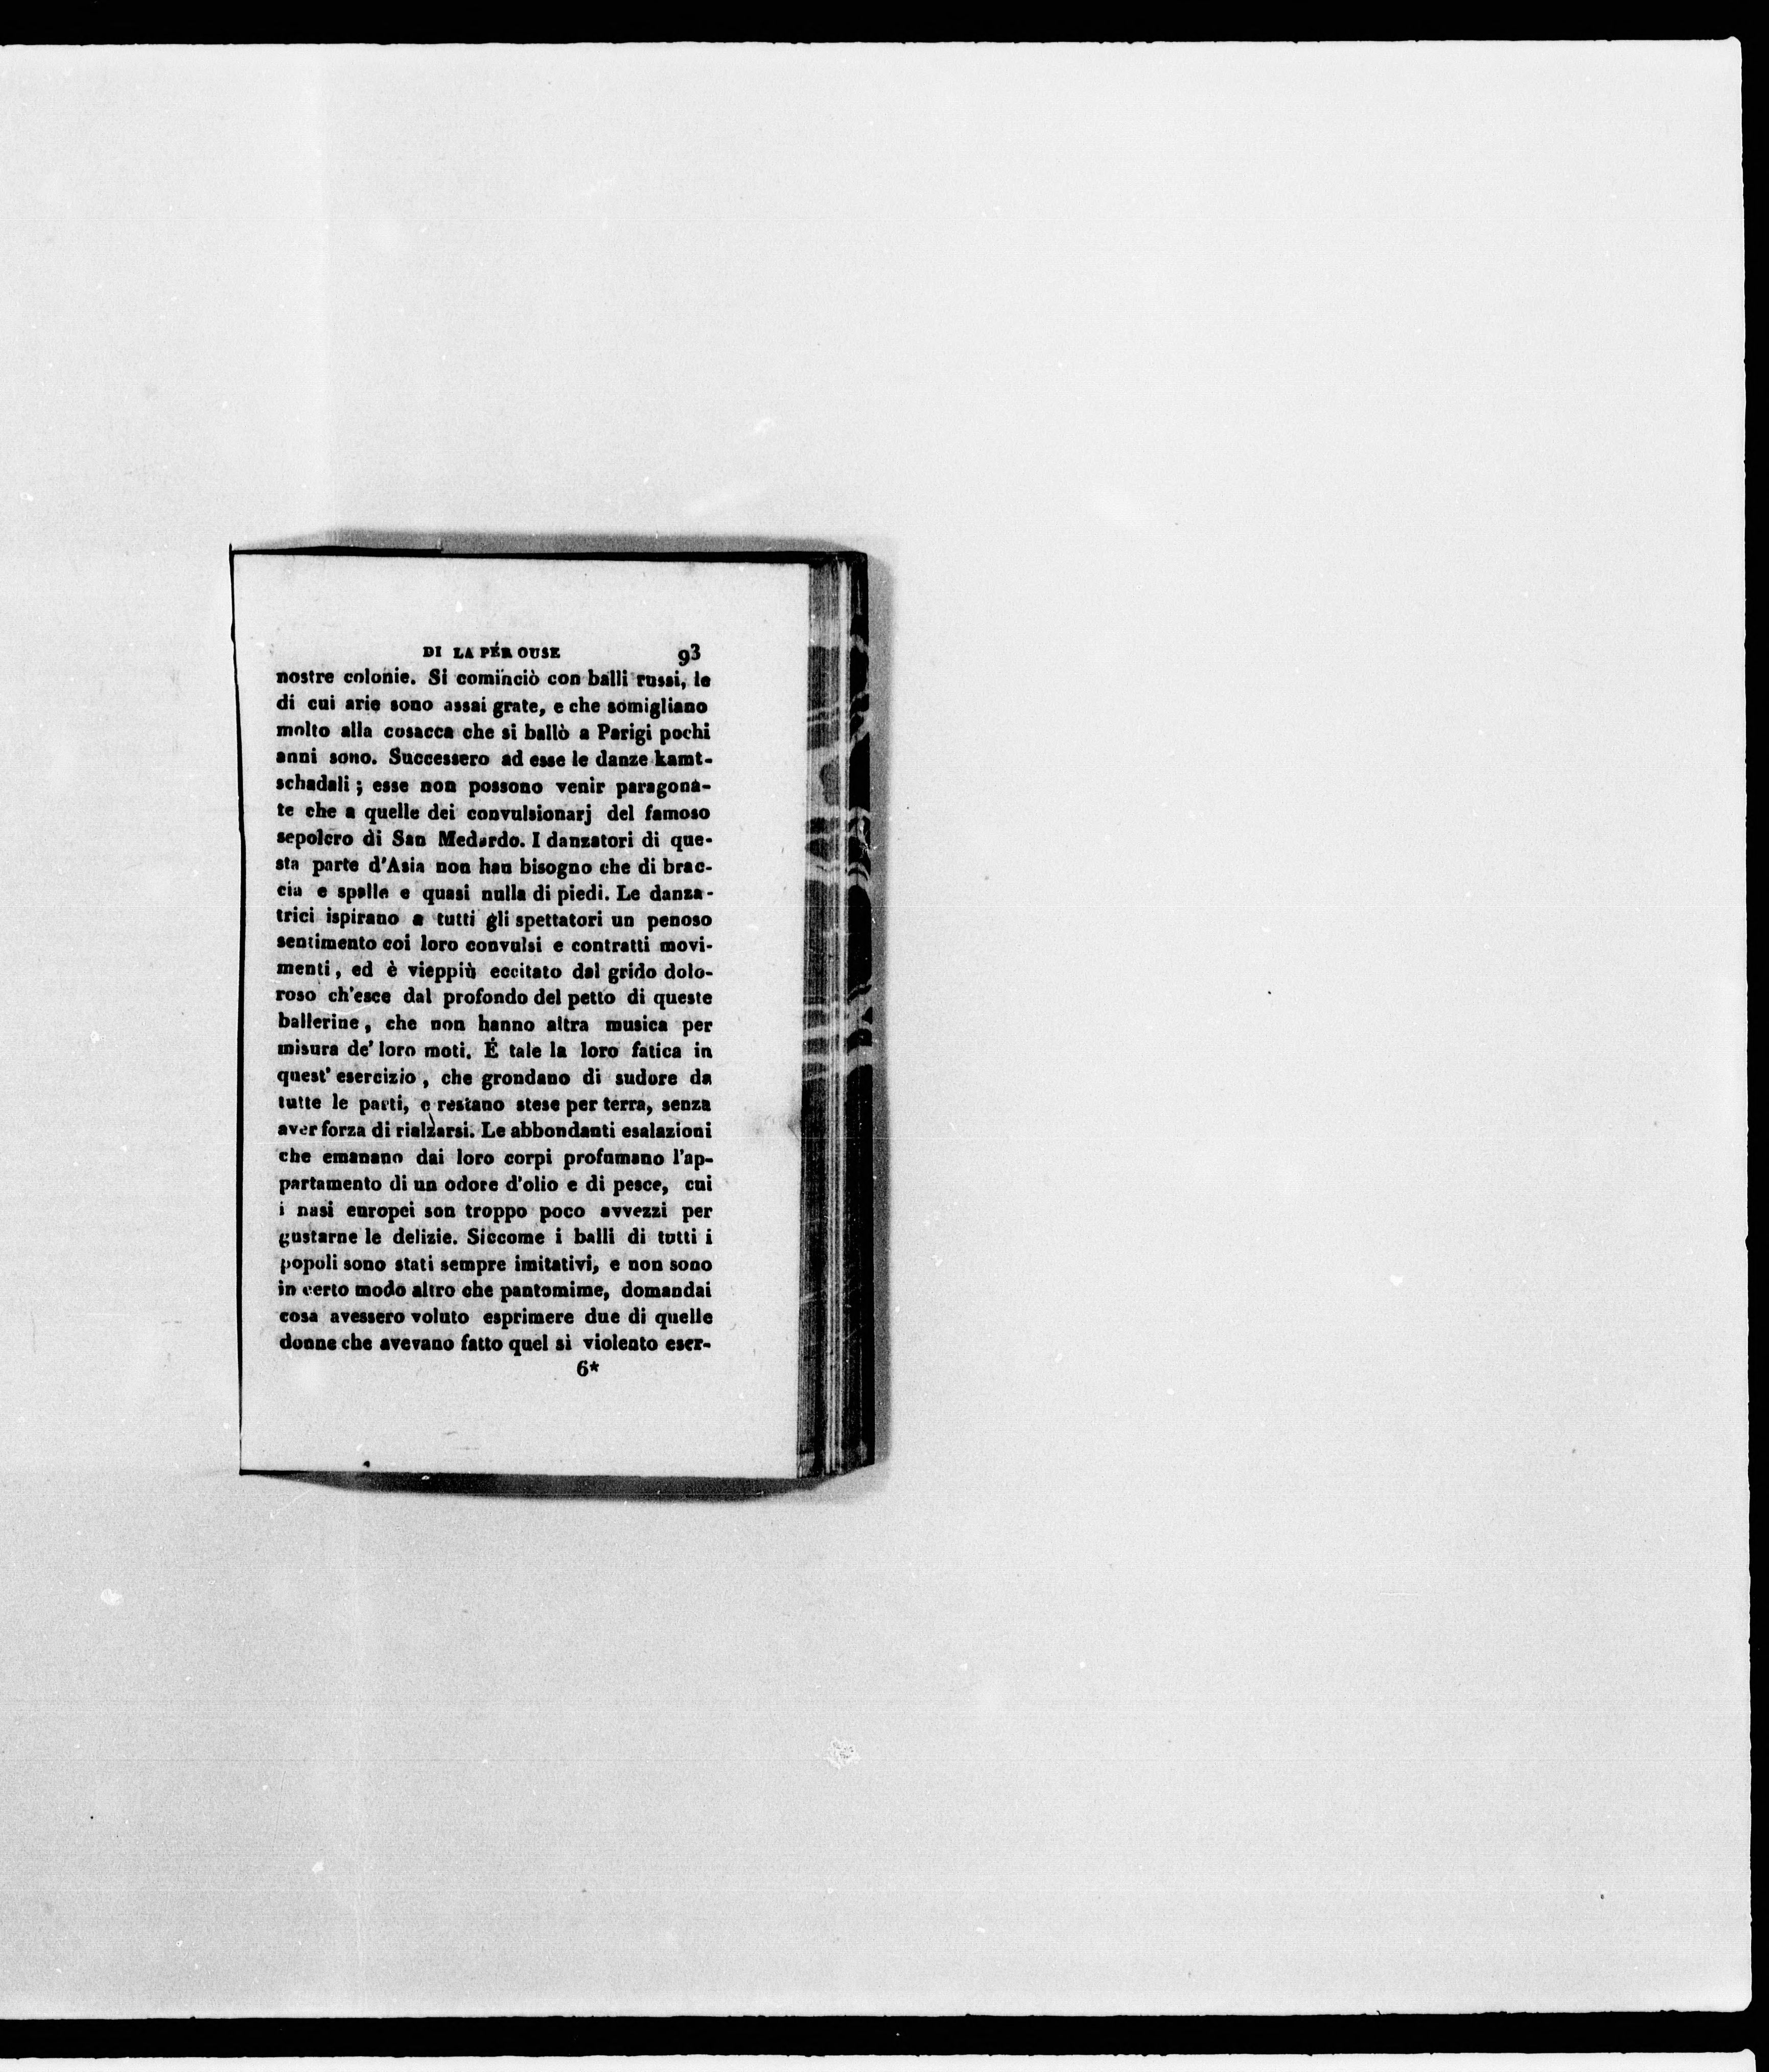 DI LA PÉR OUSE 93
nostre colonie. Si cominciò con balli russi, le
di cui arie sono assai grate, e che somigliano
molto alla cosacca che si ballò a Parigi pochi
anni sono. Successero ad esse le danze kamt-
schadali ; esse non possono venir paragona-
te che a quelle dei convulsionarj del famoso
sepolcro di San Medardo. I danzatori di que-
sta parte d'Asia non han bisogno che di brac-
cia e spalle e quasi nulla di piedi. Le danza-
trici ispirano a tutti gli spettatori un penoso
sentimento coi loro convulsi e contratti movi-
menti, ed è vieppiù eccitato dal grido dolo-
roso ch'esce dal profondo del petto di queste
ballerine, che non hanno altra musica per
misura de' loro moti. É tale la loro fatica in
quest' esercizio, che grondano di sudore da
tutte le parti, e restano stese per terra, senza
aver forza di rialzarsi. Le abbondanti esalazioni
che emanano dai loro corpi profumano l'ap-
partamento di un odore d'olio e di pesce, cui
i nasi europei son troppo poco avvezzi per
gustarne le delizie. Siccome i balli di tutti i
popoli sono stati sempre imitativi, e non sono
in certo modo altro che pantomime, domandai
cosa avessero voluto esprimere due di quelle
donne che avevano fatto quel sì violento eser-
6*